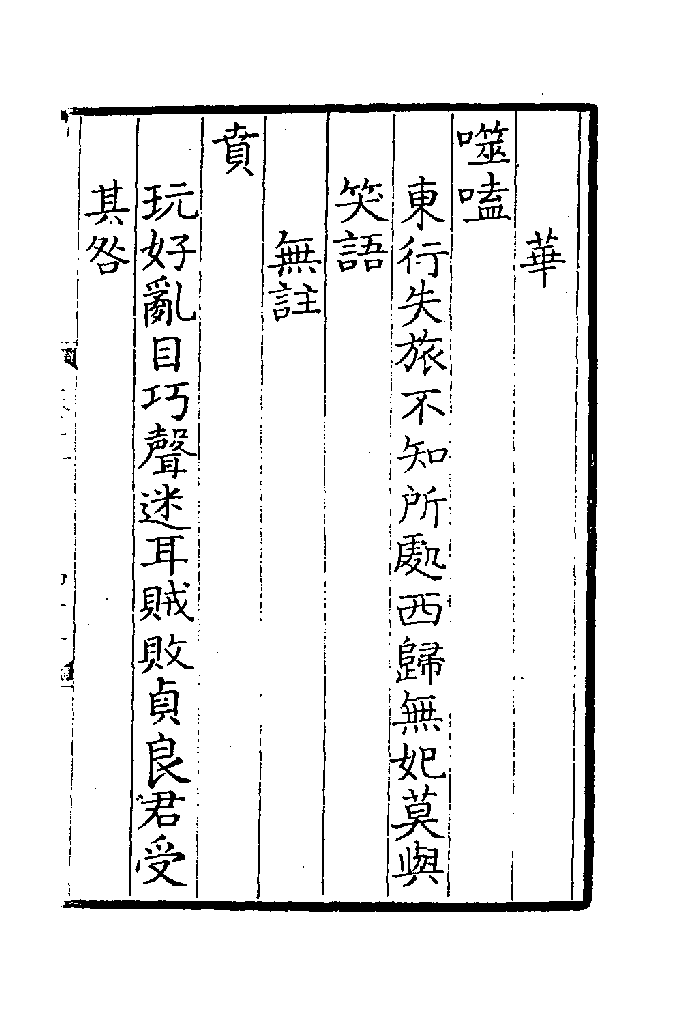 華
噬嗑
東行失旅不知所處西歸無妃莫與
笑語
無註
賁
玩好亂目巧聲迷耳賊敗貞良君受
其咎